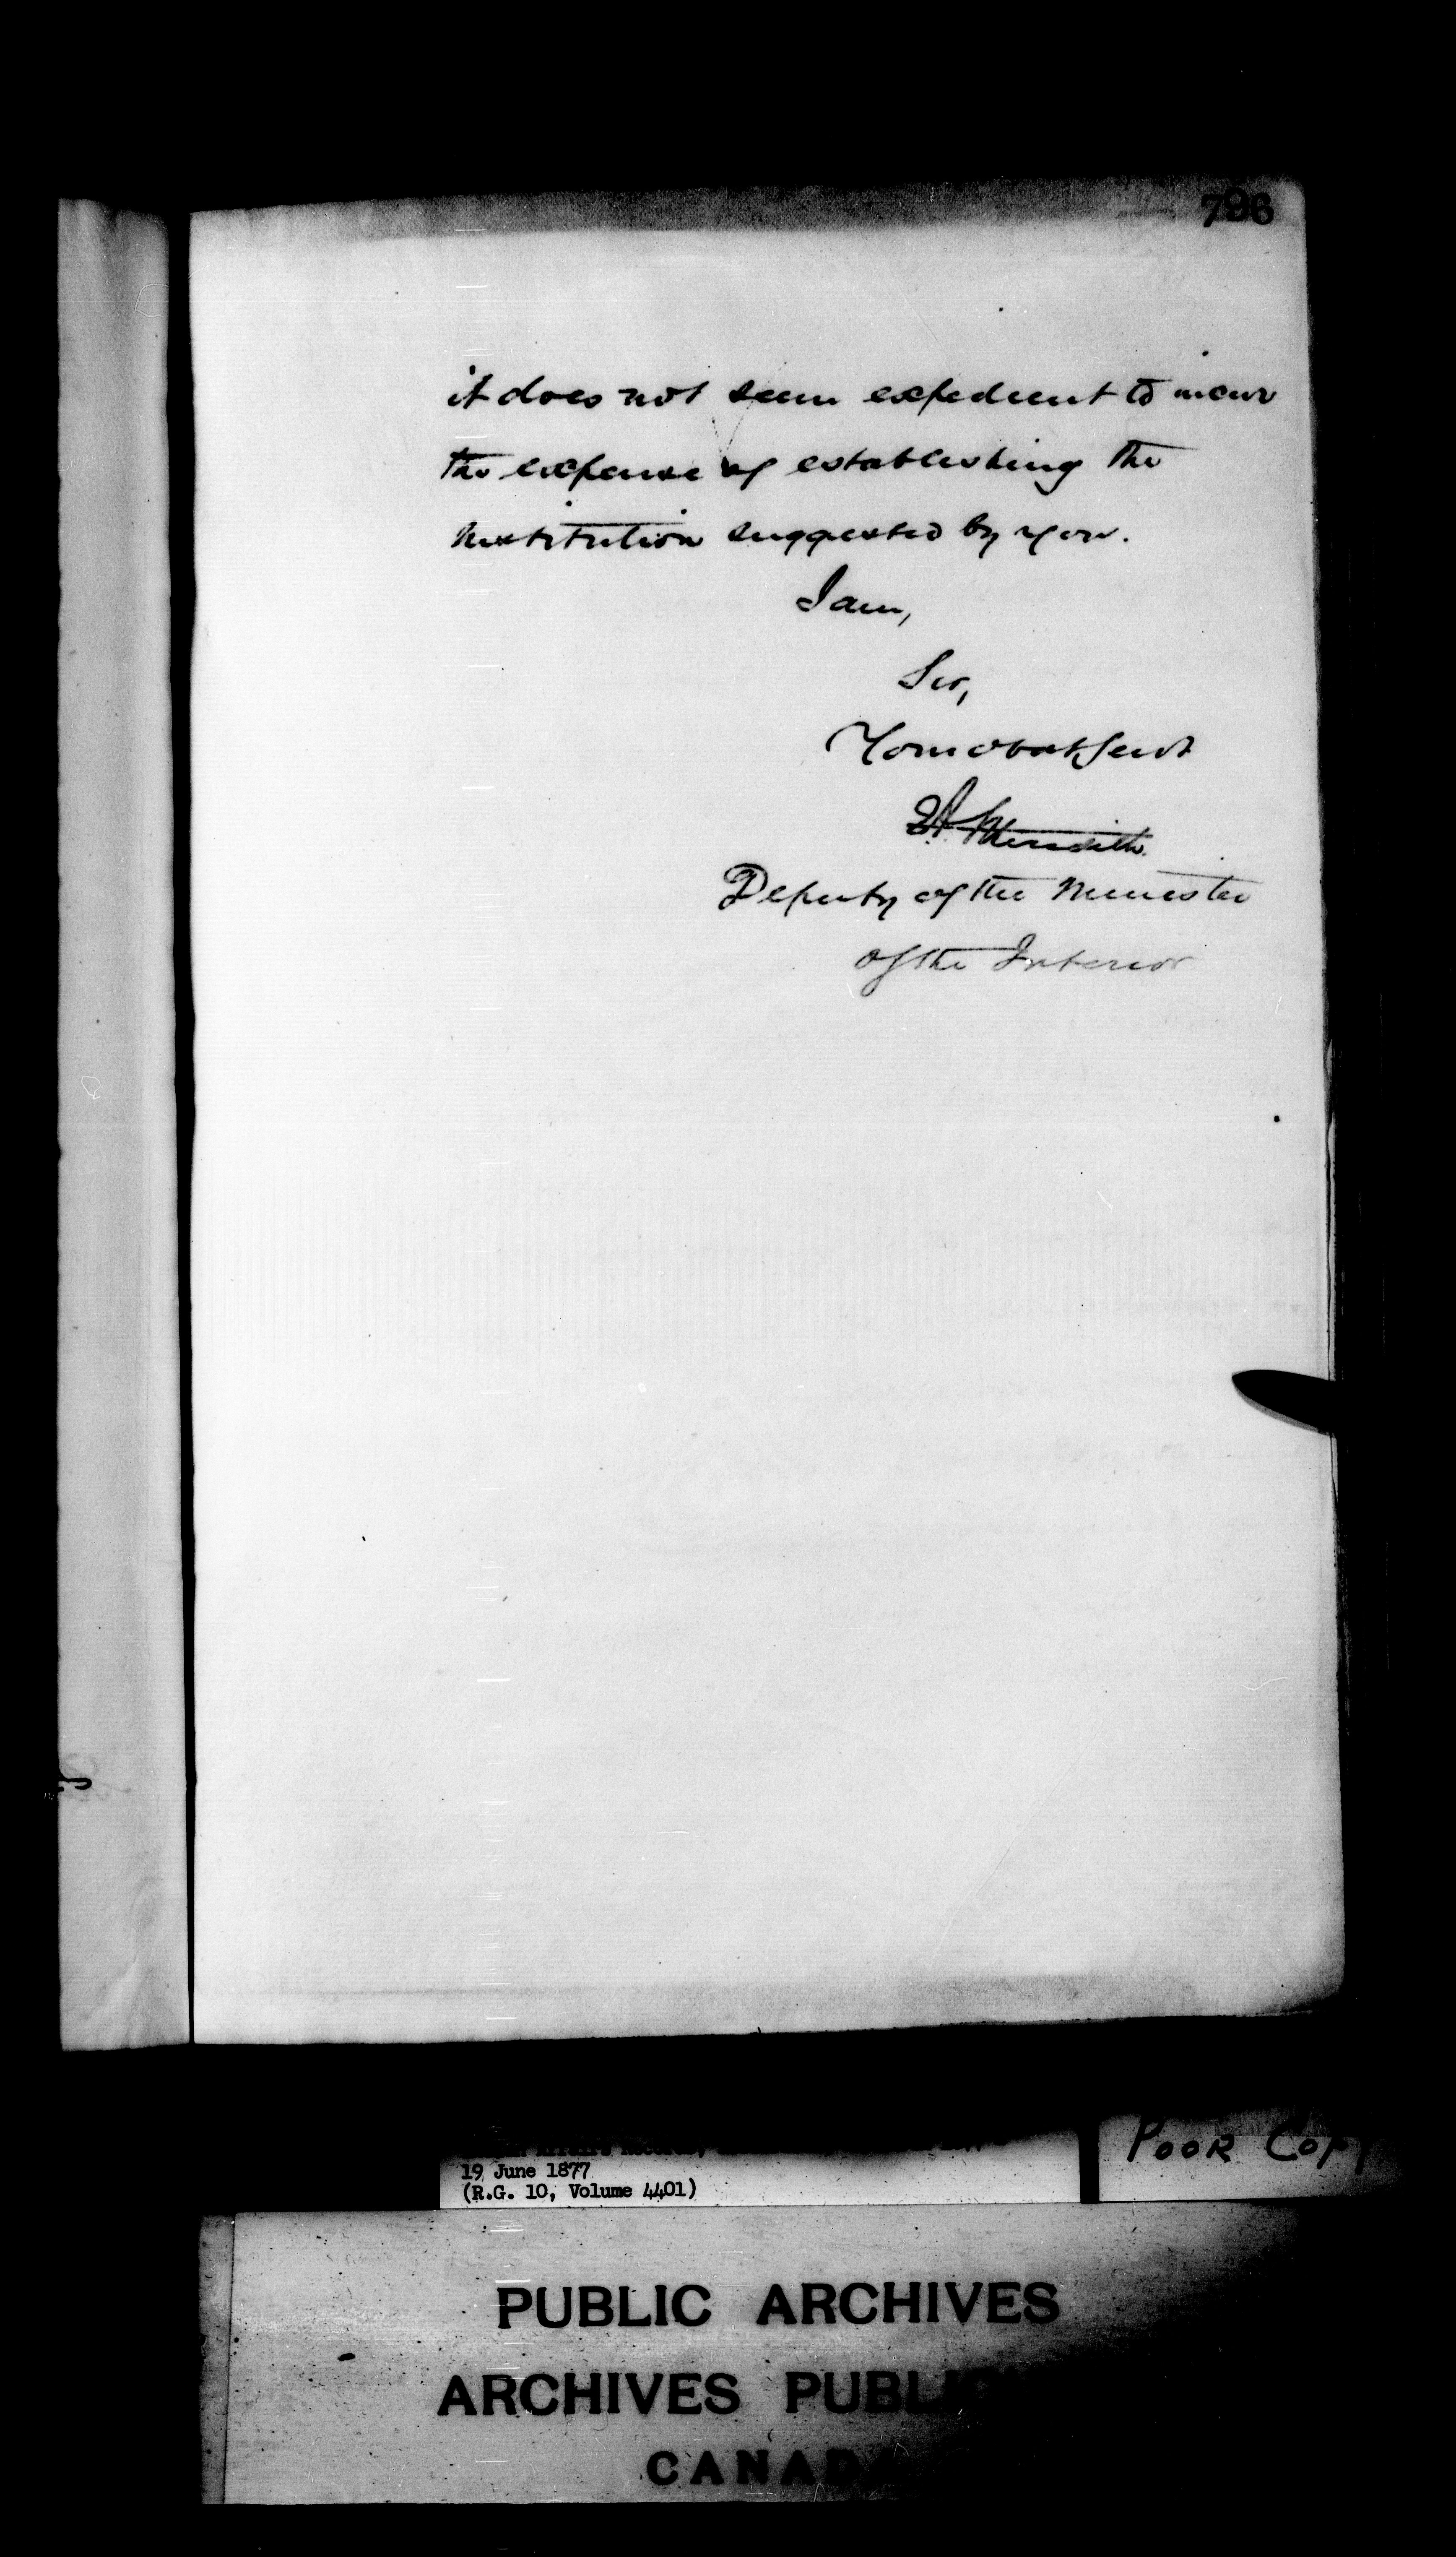 796
it does not seem expedient to incur
the expense of establishing the
Institution suggested by you.
I am,
Sir,
Your obedt Servt
E A Meredith
Deputy of the Minister
of the Interior
Affairs Records,
19 June 1877
(R.G. 10, Volume 4401)
POOR COPY
PUBLIC ARCHIVES
ARCHIVES PUBLI
CANADA